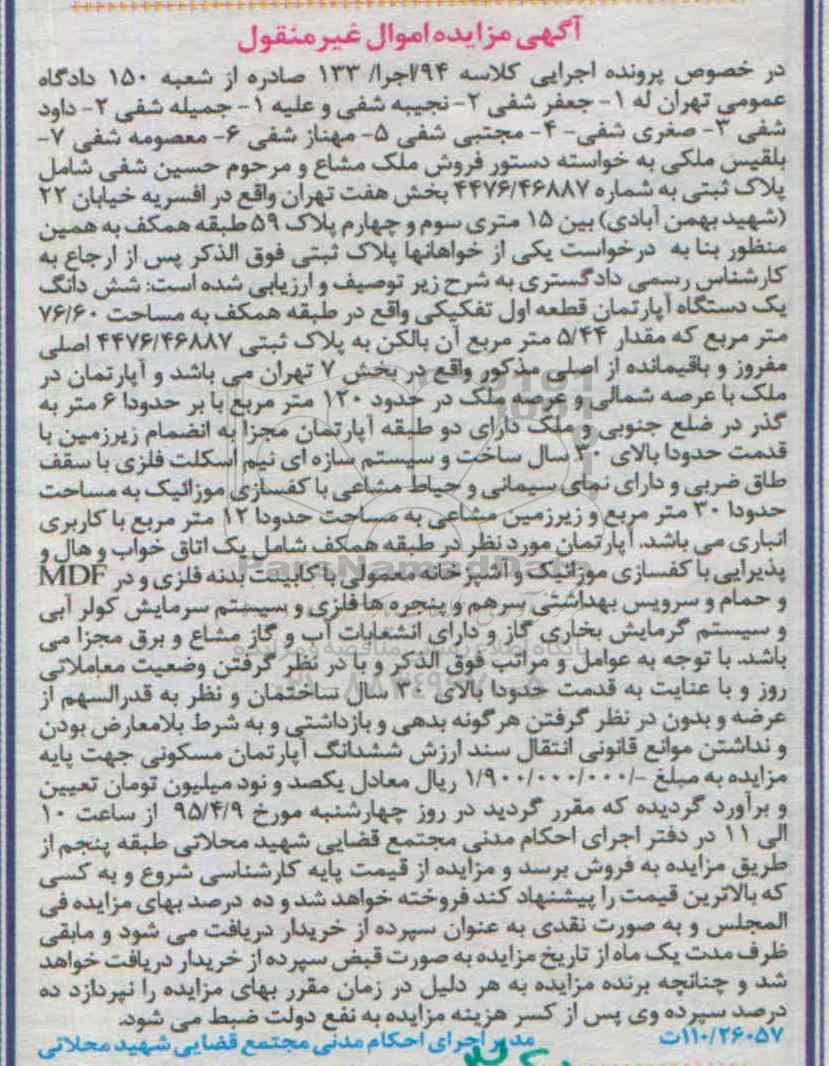 آگهی مزایده اموال غیرمنقول
در خصوص پرونده اجرایی کلاسه ۹۴/اجرا/ ۱۳۳ صادره از شعبه ۱۵۰ دادگاه
عمومی تهران له ۱- جعفر شفی ۲- نجیبه شفی و علیه ۱- جمیله شفی ۲- داود
شفی ۳- صغری شفی- ۴- مجتبی شفی ۵- مهناز شفی ۶- معصومه شفی ۷-
بلقیس ملکی به خواسته دستور فروش ملک مشاع و مرحوم حسین شفی شامل
پلاک ثبتی به شماره ۴۴۷۶/۴۶۸۸۷ بخش هفت تهران واقع در افسریه خیابان ۲۲
(شهید بهمن آبادی) بین ۱۵ متری سوم و چهارم پلاک ۵۹ طبقه همکف به همین
منظور بنا به درخواست یکی از خواهانها پلاک ثبتی فوق الذکر پس از ارجاع به
کارشناس رسمی دادگستری به شرح زیر توصیف و ارزیابی شده است: شش دانگ
یک دستگاه آپارتمان قطعه اول تفکیکی واقع در طبقه همکف به مساحت ۷۶/۶۰
متر مربع که مقدار ۵/۴۴ متر مربع آن بالکن به پلاک ثبتی ۴۴۷۶/۴۶۸۸۷ اصلی
مفروز و باقیمانده از اصلی مذکور واقع در بخش ۷ تهران می باشد و آپارتمان در
ملک با عرصه شمالی و عرصه ملک در حدود ۱۲۰ متر مربع با بر حدودا ۶ متر به
گذر در ضلع جنوبی و ملک دارای دو طبقه آپارتمان مجزا به انضمام زیرزمین با
قدمت حدودا بالای ۳۰ سال ساخت و سیستم سازه ای نیم اسکلت فلزی با سقف
طاق ضربی و دارای نمای سیمانی و حیاط مشاعی با کفسازی موزائیک به مساحت
حدودا ۳۰ متر مربع و زیرزمین مشاعی به مساحت حدودا ۱۲ متر مربع با کاربری
انباری می باشد. آپارتمان مورد نظر در طبقه همکف شامل یک اتاق خواب و هال و
پذیرایی با کفسازی موزائیک و آشپزخانه معمولی با کابینت بدنه فلزی و در MDF
و حمام و سرویس بهداشتی سرهم و پنجره ها فلزی و سیستم سرمایش کولر آبی
و سیستم گرمایش بخاری گاز و دارای انشعابات آب و گاز مشاع و برق مجزا می
باشد. با توجه به عوامل و مراتب فوق الذکر و با در نظر گرفتن وضعیت معاملاتی
روز و با عنایت به قدمت حدودا بالای ۳۰ سال ساختمان و نظر به قدرالسهم از
عرضه و بدون در نظر گرفتن هرگونه بدهی و بازداشتی و به شرط بلامعارض بودن
و نداشتن موانع قانونی انتقال سند ارزش ششدانگ آپارتمان مسکونی جهت پایه
مزایده به مبلغ -/۱/۹۰۰/۰۰۰/۰۰۰ ریال معادل یکصد و نود میلیون تومان تعیین
و برآورد گردیده که مقرر گردید در روز چهارشنبه مورخ ۹۵/۴/۹ از ساعت ۱۰
الی ۱۱ در دفتر اجرای احکام مدنی مجتمع قضایی شهید محلاتی طبقه پنجم از
طریق مزایده به فروش برسد و مزایده از قیمت پایه کارشناسی شروع و به کسی
که بالاترین قیمت را پیشنهاد کند فروخته خواهد شد و ده درصد بهای مزایده فی
المجلس و به صورت نقدی به عنوان سپرده از خریدار دریافت می شود و مابقی
ظرف مدت یک ماه از تاریخ مزایده به صورت قبض سپرده از خریدار دریافت خواهد
شد و چنانچه برنده مزایده به هر دلیل در زمان مقرر بهای مزایده را نپردازد ده
درصد سپرده وی پس از کسر هزینه مزایده به نفع دولت ضبط می شود.
۱۱۰/۲۶۰۵۷ت مدیر اجرای احکام مدنی مجتمع قضایی شهید محلاتی
ParsNamadData
پایگاه اطلاع رسانی مناقصه و مزایده